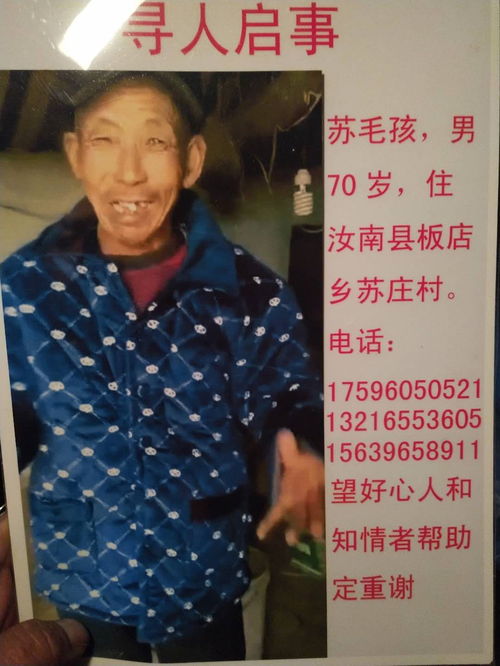 寻人启事
苏毛孩，男
70岁，住
汝南县板店
乡苏庄村。
电话：
17596050521
13216553605
15639658911
望好心人和
知情者帮助
定重谢